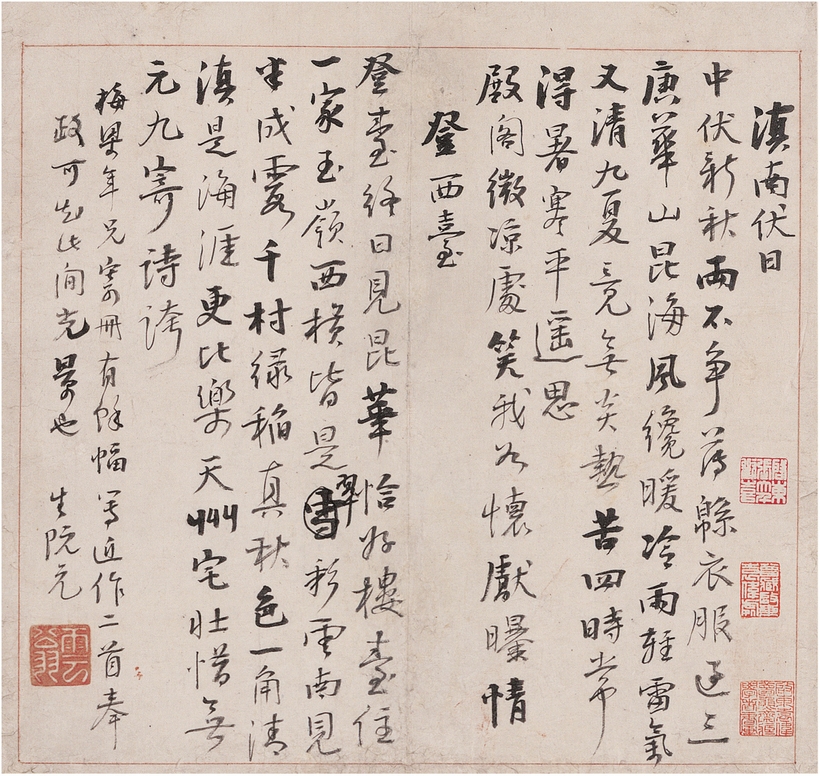 滇南伏日
中伏新秋兩不争薄緜衣服過三
庚華山昆海風纔暖冷雨輕雷氣
又清九夏竟無炎熱苦四時常
得暑寒平遥思
殿閣微凉處笑我如懷獻曝情
登西臺
登臺終日見昆華恰好樓臺住
一家玉嶺西橫皆是翠彩雲南見
半成霞千村緑稻真秋色一角清
滇是海涯更比樂天州宅壯惜無
元九寄詩誇
梅梁年兄寄冊有餘幅寫近作二首奉
政可知此間光景也 生阮元